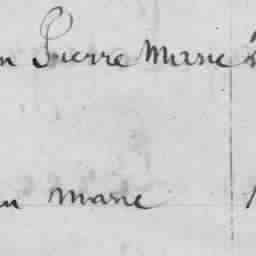 n Pierre Marie
n Marie